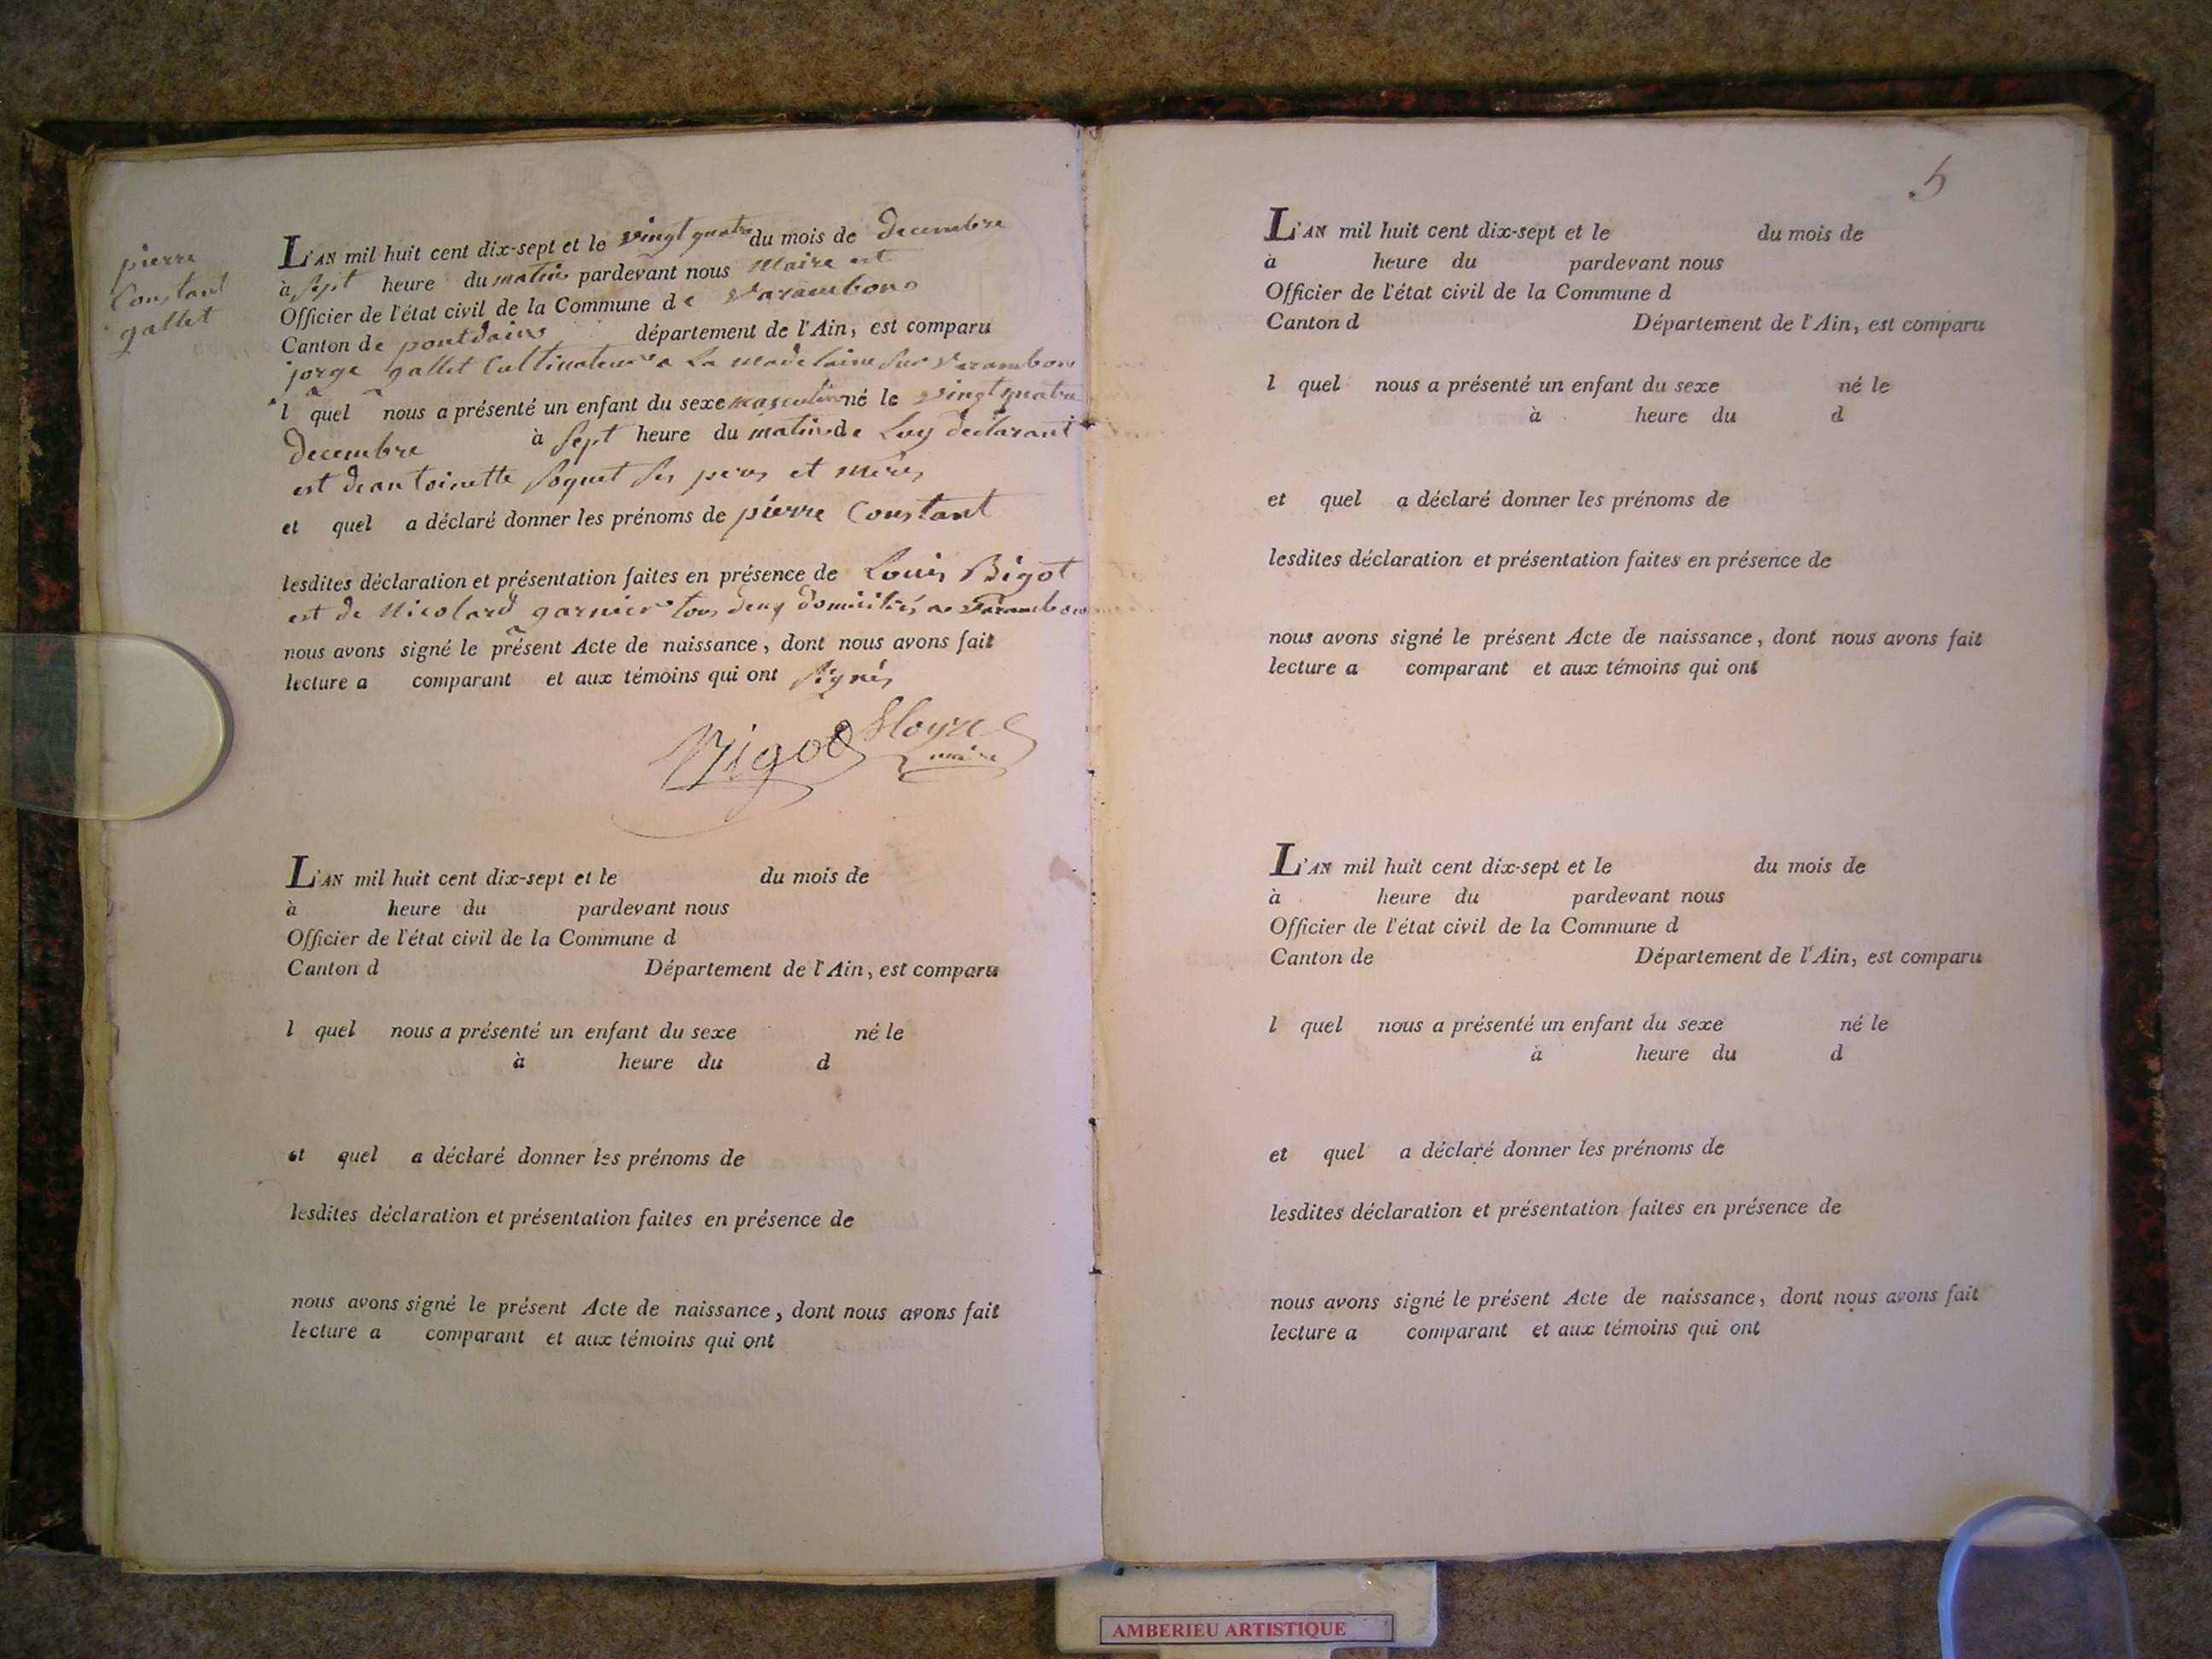 pierre
Constant
gallet
L'AN mil huit cent dix-sept et le vingt quatre du mois de decembre
à sept heure du matin pardevant nous Maire est
Officier de l'état civil de la Commune de Varambons
Canton de pontdains département de l'Ain, est comparu
jorge gallet Cultivateur a La madelaine sur Varambon
l quel nous a présenté un enfant du sexe masculin né le vingt quatre
decembre à sept heure du matin de Luy declarant
est de antoinette foquet ses peres et meres
et quel a déclaré donner les prénoms de pierre Constant
lesdites déclaration et présentation faites en présence de Louis Bigot
est de Nicolard garnier tous deux domiciliés a Varambon
nous avons signé le présent Acte de naissance, dont nous avons fait
lecture a comparant et aux témoins qui ont signés
Bigot
maire
L'AN mil huit cent dix-sept et le du mois de
à heure du pardevant nous
Officier de l'état civil de la Commune d
Canton d Département de l'Ain, est comparu
l quel nous a présenté un enfant du sexe né le
à heure du d
et quel a déclaré donner les prénoms de
lesdites déclaration et présentation faites en présence de
nous avons signé le présent Acte de naissance, dont nous avons fait
lecture a comparant et aux témoins qui ont
5
L'AN mil huit cent dix-sept et le du mois de
à heure du pardevant nous
Officier de l'état civil de la Commune d
Canton d Département de l'Ain, est comparu
l quel nous a présenté un enfant du sexe né le
à heure du d
et quel a déclaré donner les prénoms de
lesdites déclaration et présentation faites en présence de
nous avons signé le présent Acte de naissance, dont nous avons fait
lecture a comparant et aux témoins qui ont
L'AN mil huit cent dix-sept et le du mois de
à heure du pardevant nous
Officier de l'état civil de la Commune d
Canton de Département de l'Ain, est comparu
l quel nous a présenté un enfant du sexe né le
à heure du d
et quel a déclaré donner les prénoms de
lesdites déclaration et présentation faites en présence de
nous avons signé le présent Acte de naissance, dont nous avons fait
lecture a comparant et aux témoins qui ont
AMBERIEU ARTISTIQUE